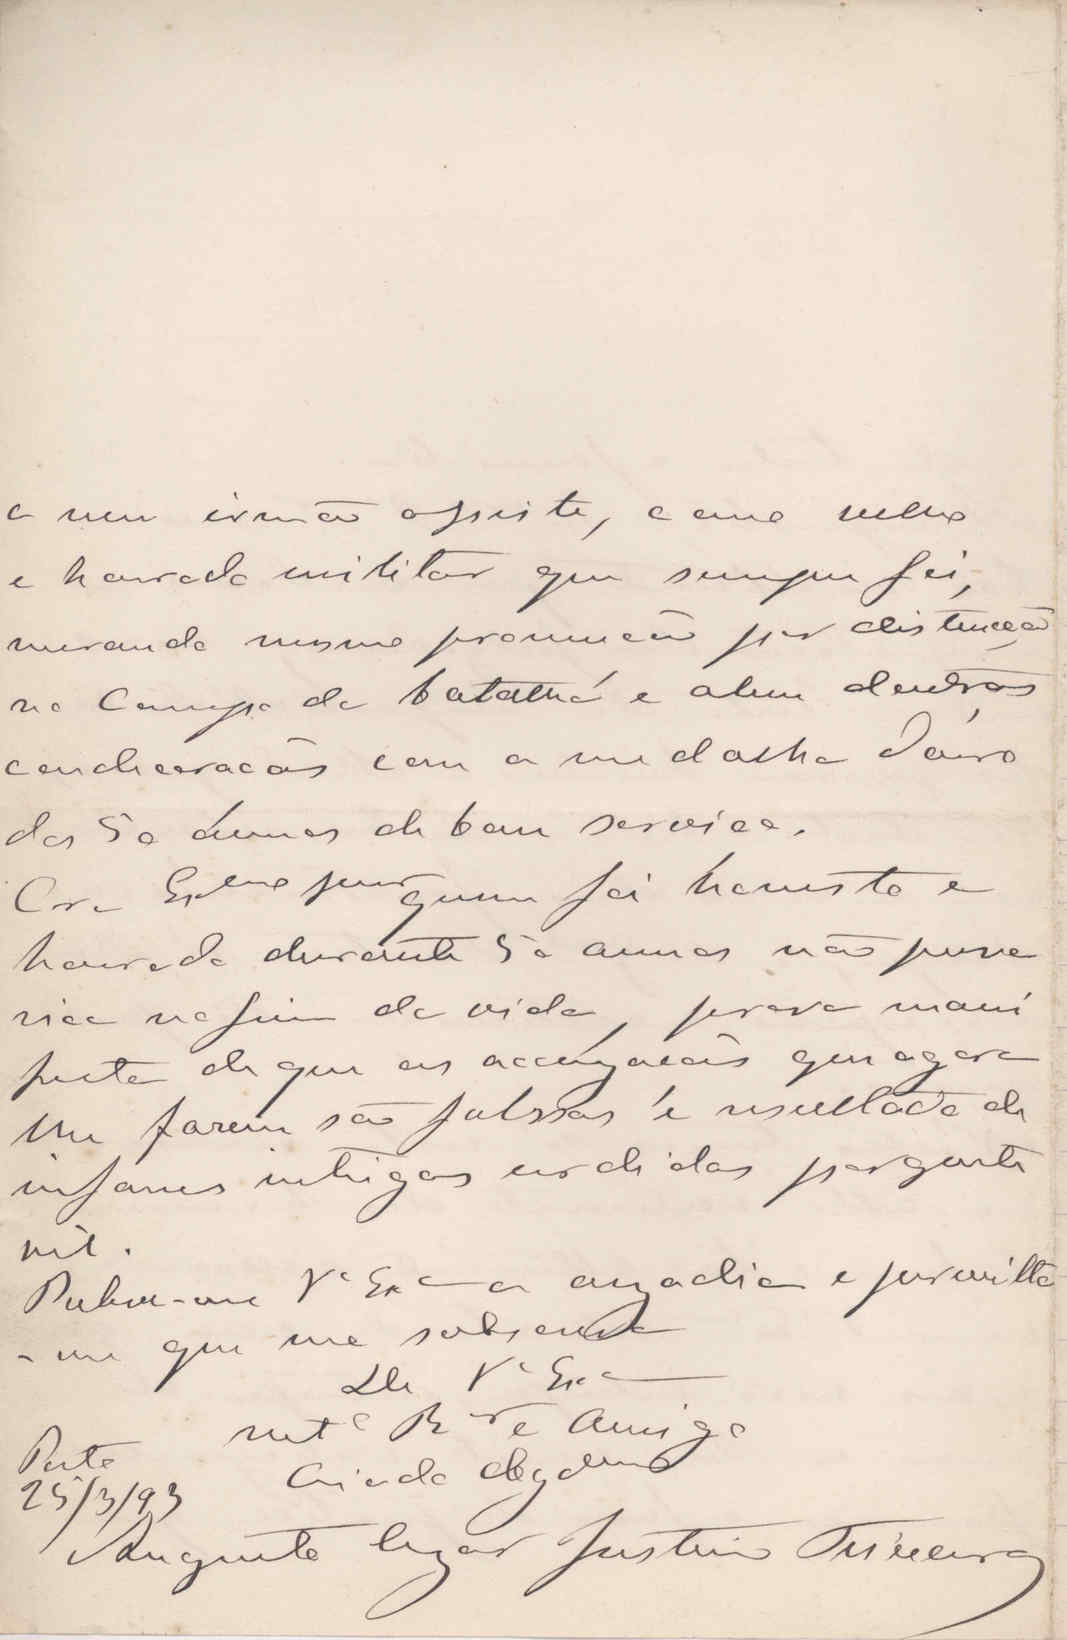 a meu irmão assiste, como velho
e honrado militar que sempre foi,
merecendo mesmo promoção por distincção
no Campo da batalha e alem de outras
condecorações com a medalha d'ouro
dos 50 annos de bom serviço.
Ora Exmo Snr quem foi honesto e
honrado durante 50 annos não preva
rica no fim da vida, prova mani
festa de que as accusações que agora
lhe fazem são falssas e resultado de
infames intrigas urdidas por gente
vil.
Releve-me Vª Exª a ousadia e permitta
-me que me subscreva
De Vª Exª
mtº Ror e Amigo
Criado obgdmo
Porto
25/3/93
Augusto Cezar Justino Teixeira